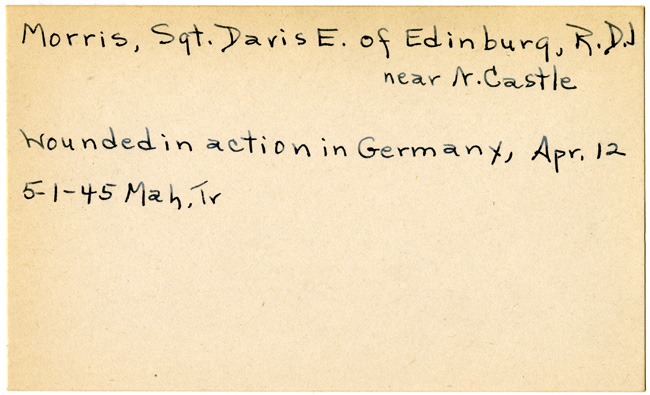 Morris, Sgt. Davis E. of Edinburg, R.D.1
near N. Castle
Wounded in action in Germany, Apr. 12
5-1-45 Mah, Tr